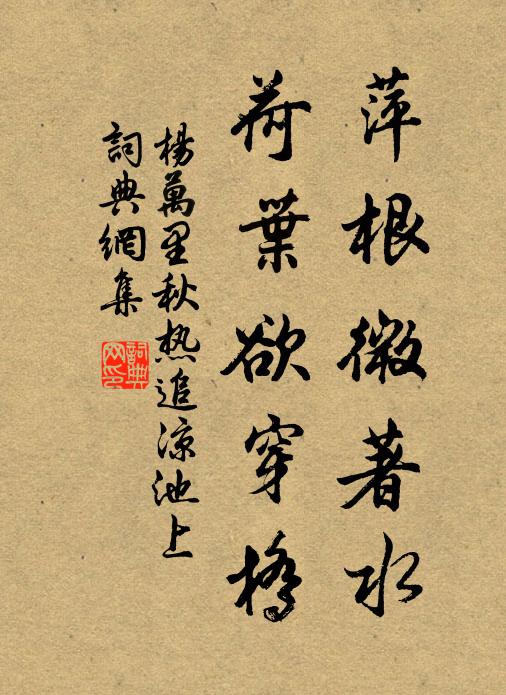 萍根微著水
荷葉欲穿橋
楊萬里秋热追涼池上
詞典網集
詞典网印